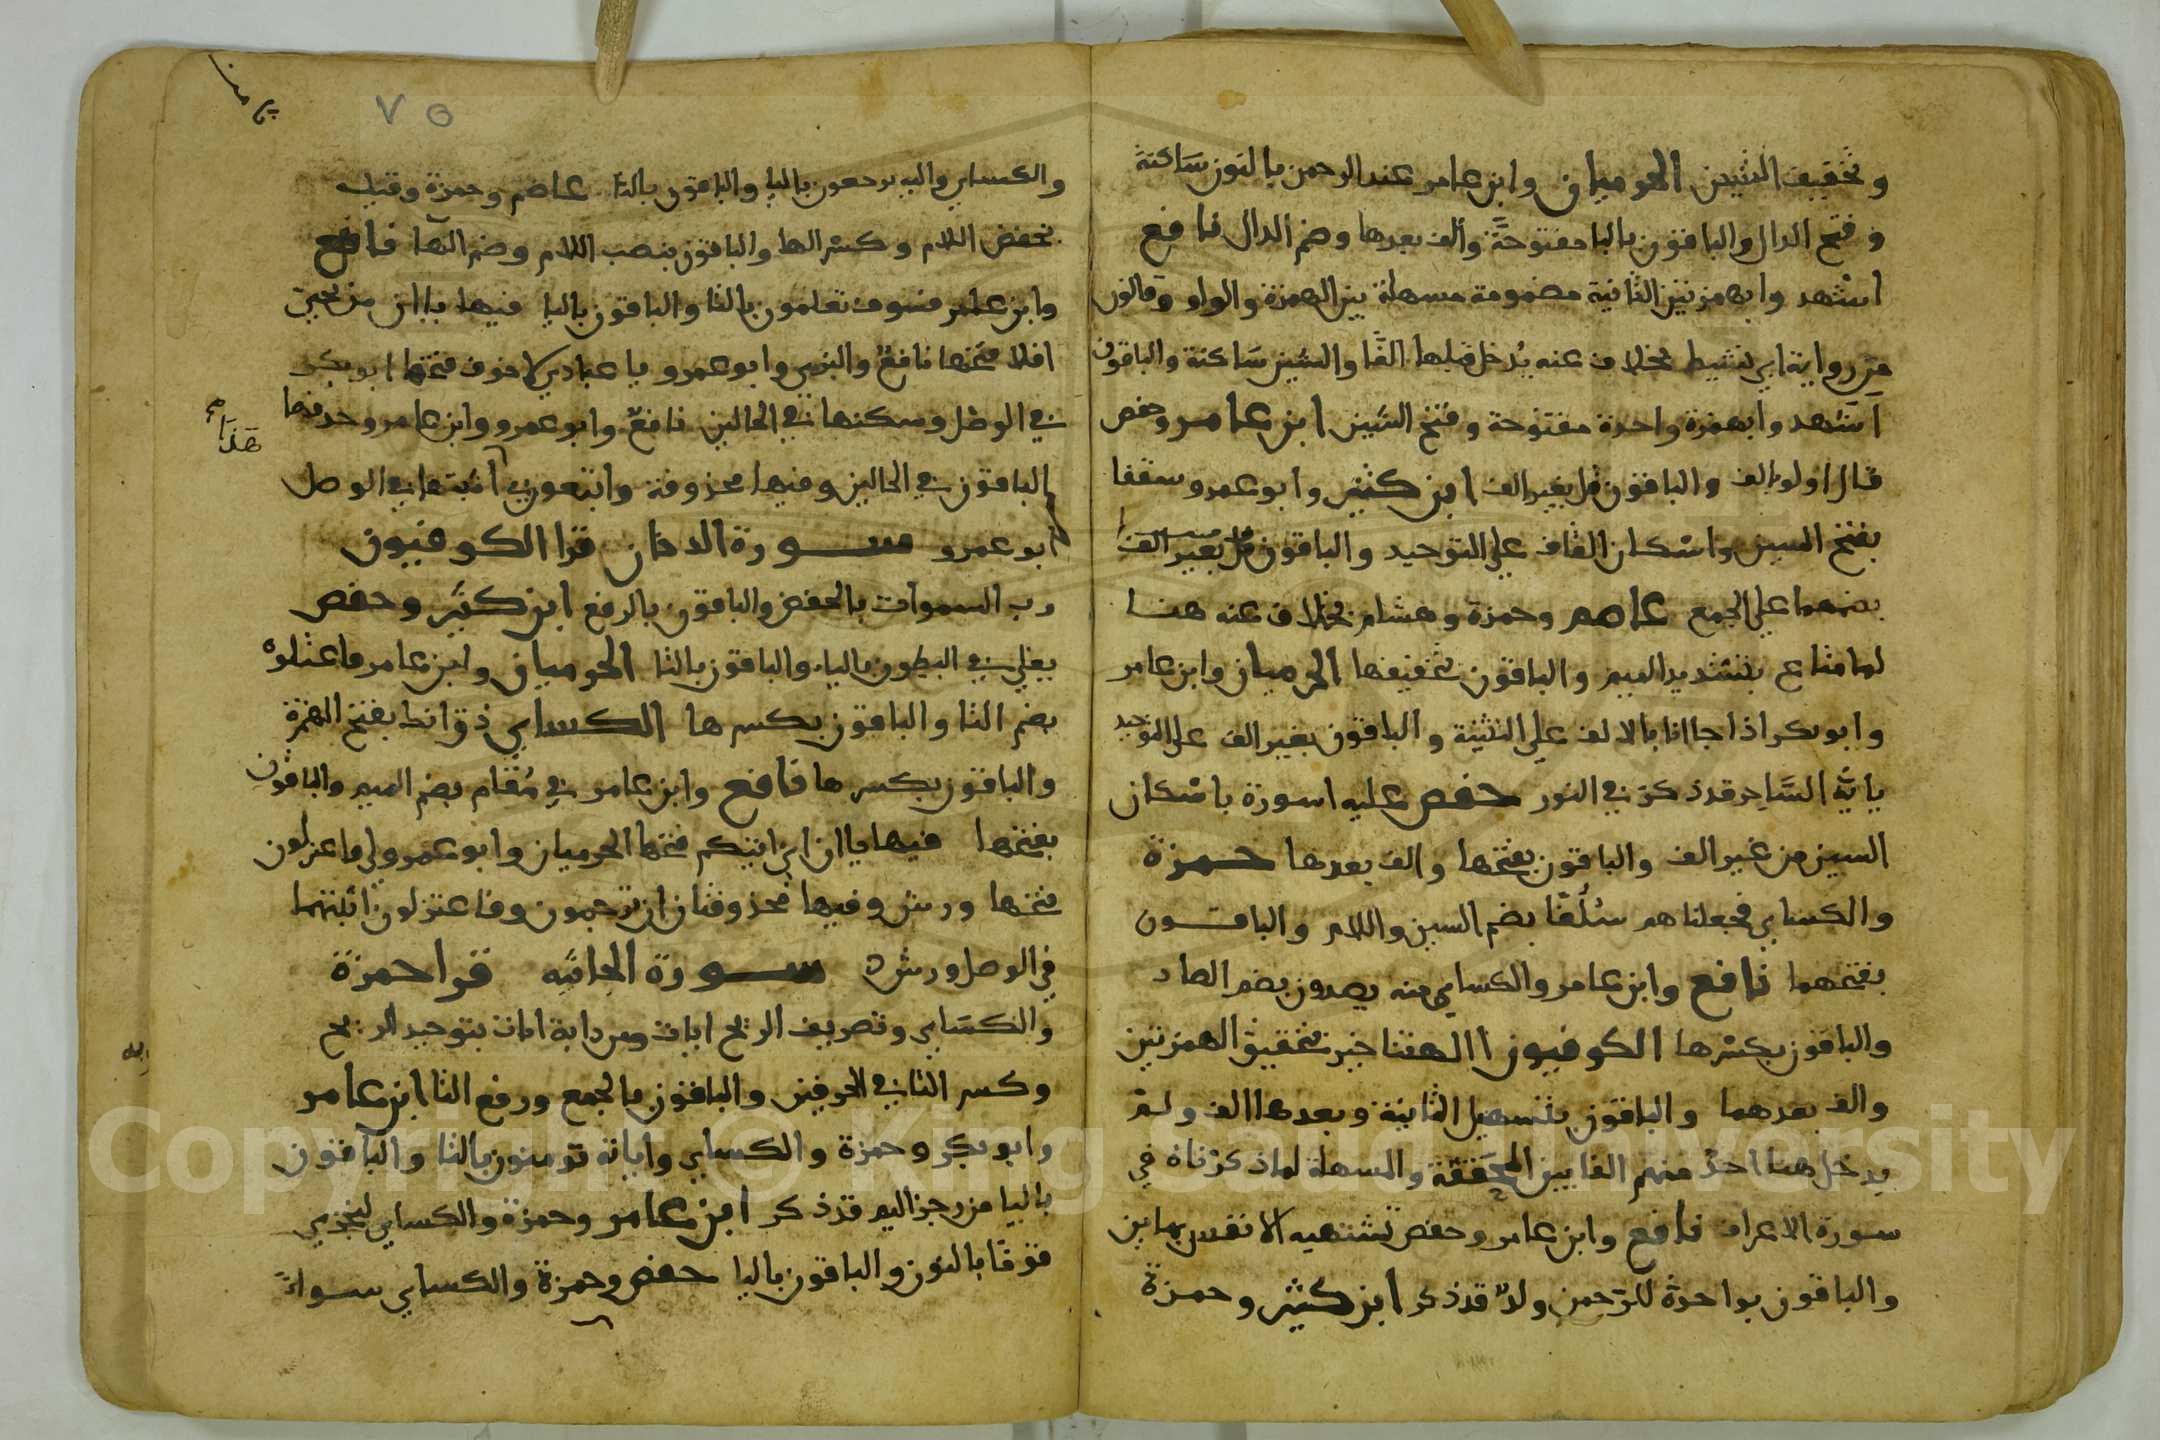 وتخفيف الشين الحرميان وابن عامر عند الرحمن بالنون ساكنة
وفتح الدال والباقون بالبا مفتوحة وألف بعدها وضم الدال نافع
اشهد وا بهمزتين الثانية مضمومة مسهلة بين الهمزة والواو وقالون
من رواية ابي نشيط بخلاف عنه يدخل قبلها الفا والشين ساكنة والباقون
اشهد وا بهمزة واحدة مفتوحة وفتح الشين ابن عامر وحفص
قال اولو بالف والباقون قل بغير الف ابن كثير وابو عمرو سقفا
بفتح السين واسكان القاف علي التوحيد والباقون
بضمهما علي الجمع عاصم وحمزة وهشام بخلاف عنه هنا
لما متاع بتشديد الميم والباقون بتخفيفها الحرميان وابن عامر
وابو بكر اذا جاانا بالالف علي التثنية والباقون بغير الف علي التوحيد
يايه الساحر قد ذكر في النور حفص عليه اسورة باسكان
السين من غير الف والباقون بفتحها والف بعدها حمزة
والكساي فجعلناهم سلفا بضم السين واللام والباقون
بفتحهما نافع وابن عامر والكساي منه يصدون بضم الصاد
والباقون بكسرها الكوفيون االهتنا خير بتحقيق الهمزتين
والف بعدهما والباقون بتسهيل الثانية وبعدها الف ولم
يدخل هنا احد منهم الفا بين المحققة والمسهلة لما ذكرناه في
سورة الاعراف نافع وابن عامر وحفص تشتهيه الانفس بهاين
والباقون بواحدة للرحمن ولد قد ذكر ابن كثير وحمزة
٧٥
والكساي واليه يرجعون باليا والباقون بالتا عاصم وحمزة وقيله
بخفض اللام وكسر الها والباقون بنصب اللام وضم الها نافع
وابن عامر فسوف تعلمون بالتا والباقون باليا فيها ياان من تحتي
افلا فتحها نافع والبزي وابو عمرو يا عبادي لا خوف فتحها ابو بكر
في الوصل وسكنها في الحالين نافع وابو عمرو وابن عامر وحذفها
الباقون في الحالين وفيها محذوفة واتبعوني اثبتها في الوصل
ابو عمرو سورة الدخان قرا الكوفيون
رب السموات بالخفض والباقون بالرفع ابن كثير وحفص
يغلي في البطون بالياء والباقون بالتا الحرميان وابن عامر فاعتلوه
بضم التا والباقون بكسرها الكساي ذق انك بفتح الهمزة
والباقون بكسرها نافع وابن عامر في مقام بضم الميم والباقون
بفتحها فيها ياان اني اتيكم فتحها الحرميان وابو عمرو ولي فاعتزلون
فتحها ورش وفيها محذوفتان ان ترجمون وفاعتزلون اثبتهما
في الوصل ورش سورة الجاثيه قرا حمزة
والكساي وتصريف الريح ايات ومن دابة ايات بتوحيد الريح
وكسر التا في الحرفين والباقون بالجمع ورفع التا ابن عامر
وابو بكر وحمزة والكساي واياته تومنون بالتا والباقون
باليا من رجز اليم قد ذكر ابن عامر وحمزة والكساي لنجزي
قوما بالنون والباقون باليا حفص وحمزة والكساي سواء
Copyright © King Saud University